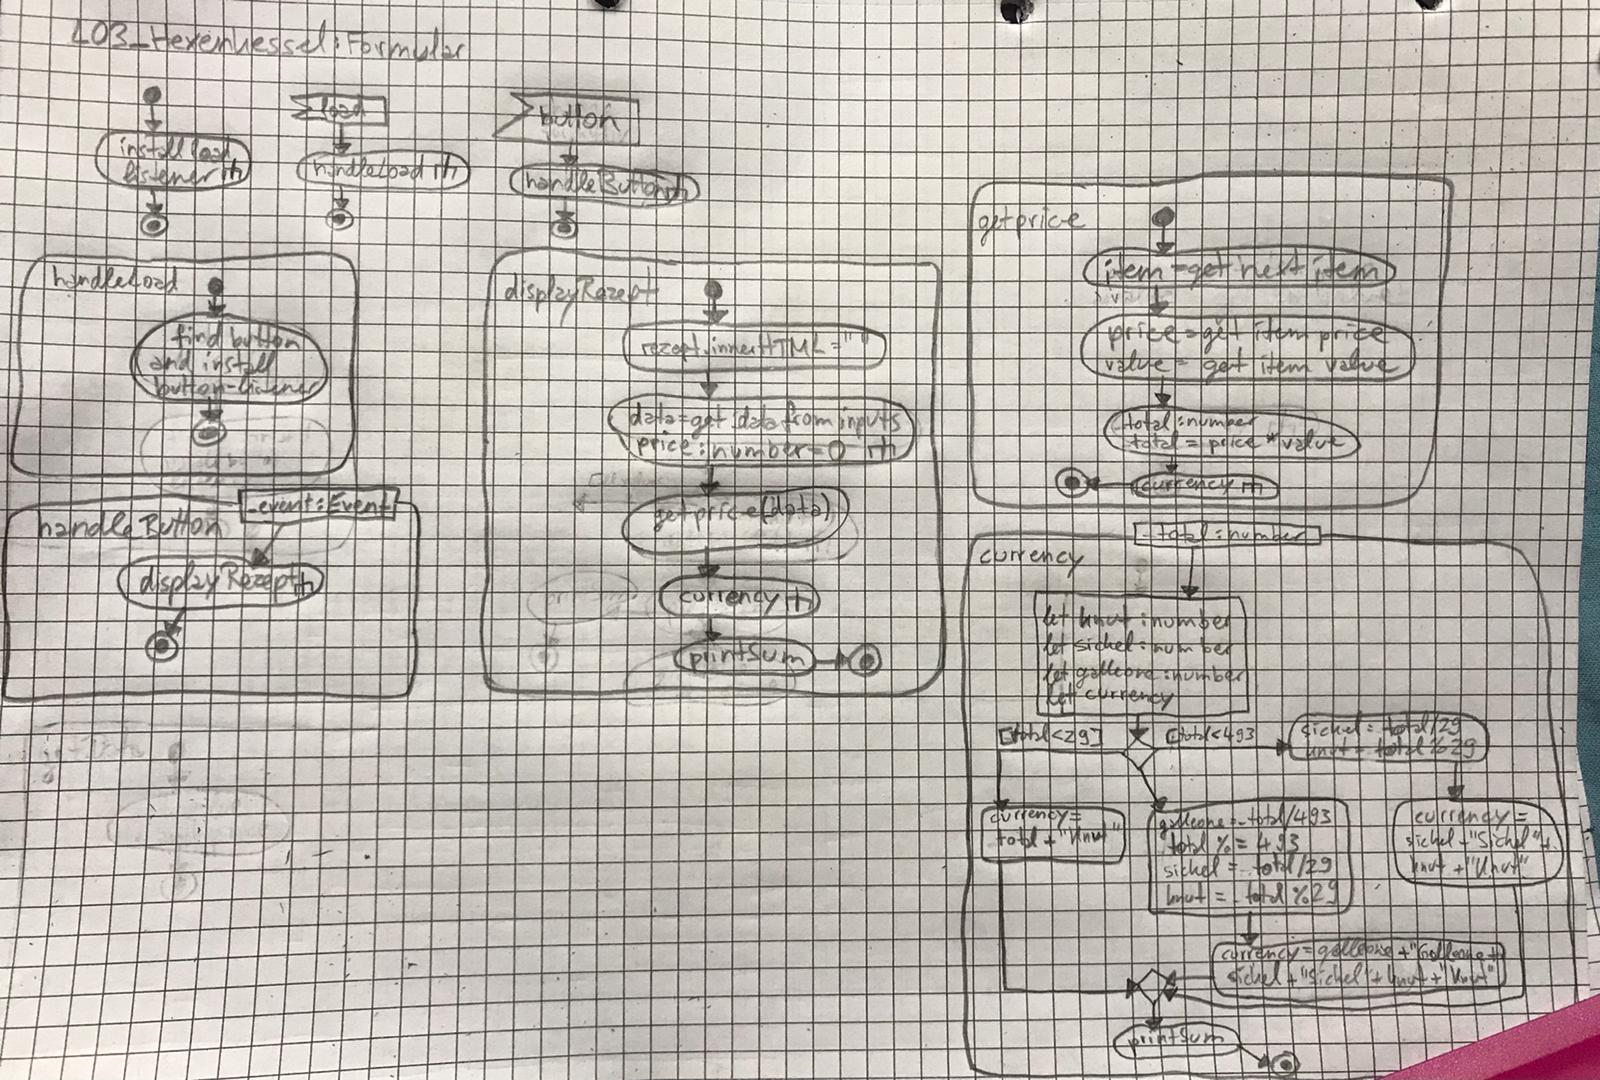 L03_Hexenkessel:Formular
install load
listener
load
handleLoad
button
handleButton
handleLoad
find button
and install
button-listener
handleButton
_event:Event
displayRezept
displayRezept
rezept.innerHTML=""
data=get data from inputs
price:number=0
getprice(data)
currency
printSum
getprice
item=get next item
price=get item price
value= get item value
_total:number
_total=price * value
currency
_total:number
currency
let knut:number
let sickel:number
let galleone:number
let currency
[total<29]
[total<493
sickel=_total/29
knut=_total%29
currency=
total+"Knut"
galleone=_total/493
total %= 493
sickel=_total/29
knut=_total%29
currency=
sickel+"Sickel"+
knut+"Knut"
currency=galleone+"Galleone+
sickel+"Sickel"+knut+"Knut"
printSum